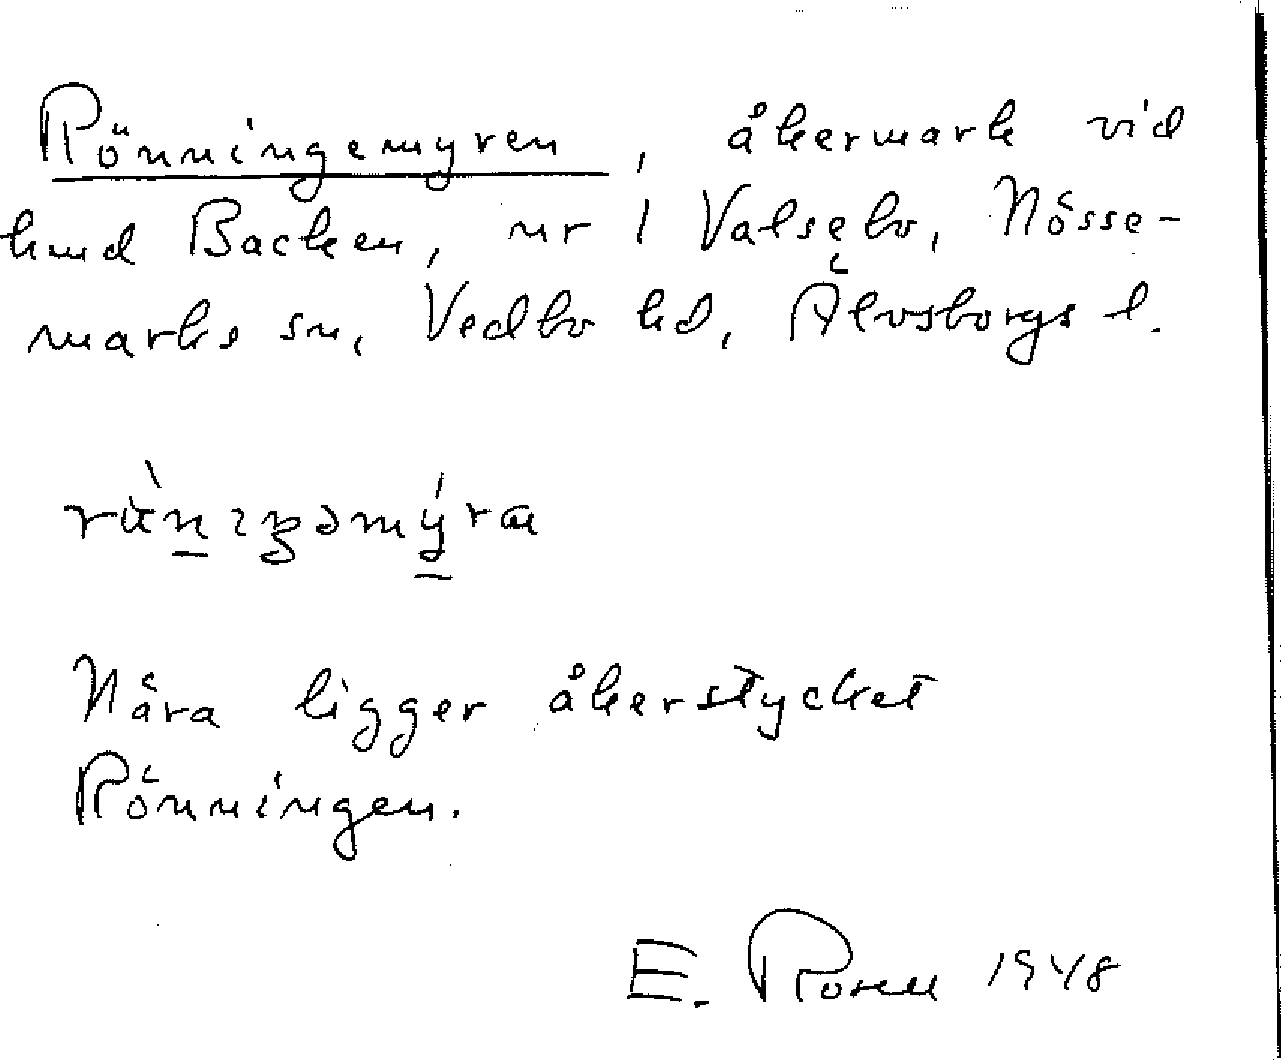 Rönningemyren, åkermark vid
hmd Backen, nr 1 Valsebo, Nösse-
marks sn, Vedbo hd, Älvsborgs l.
Nära ligger åkerstycket
Rönningen.
E. Rosell 1948